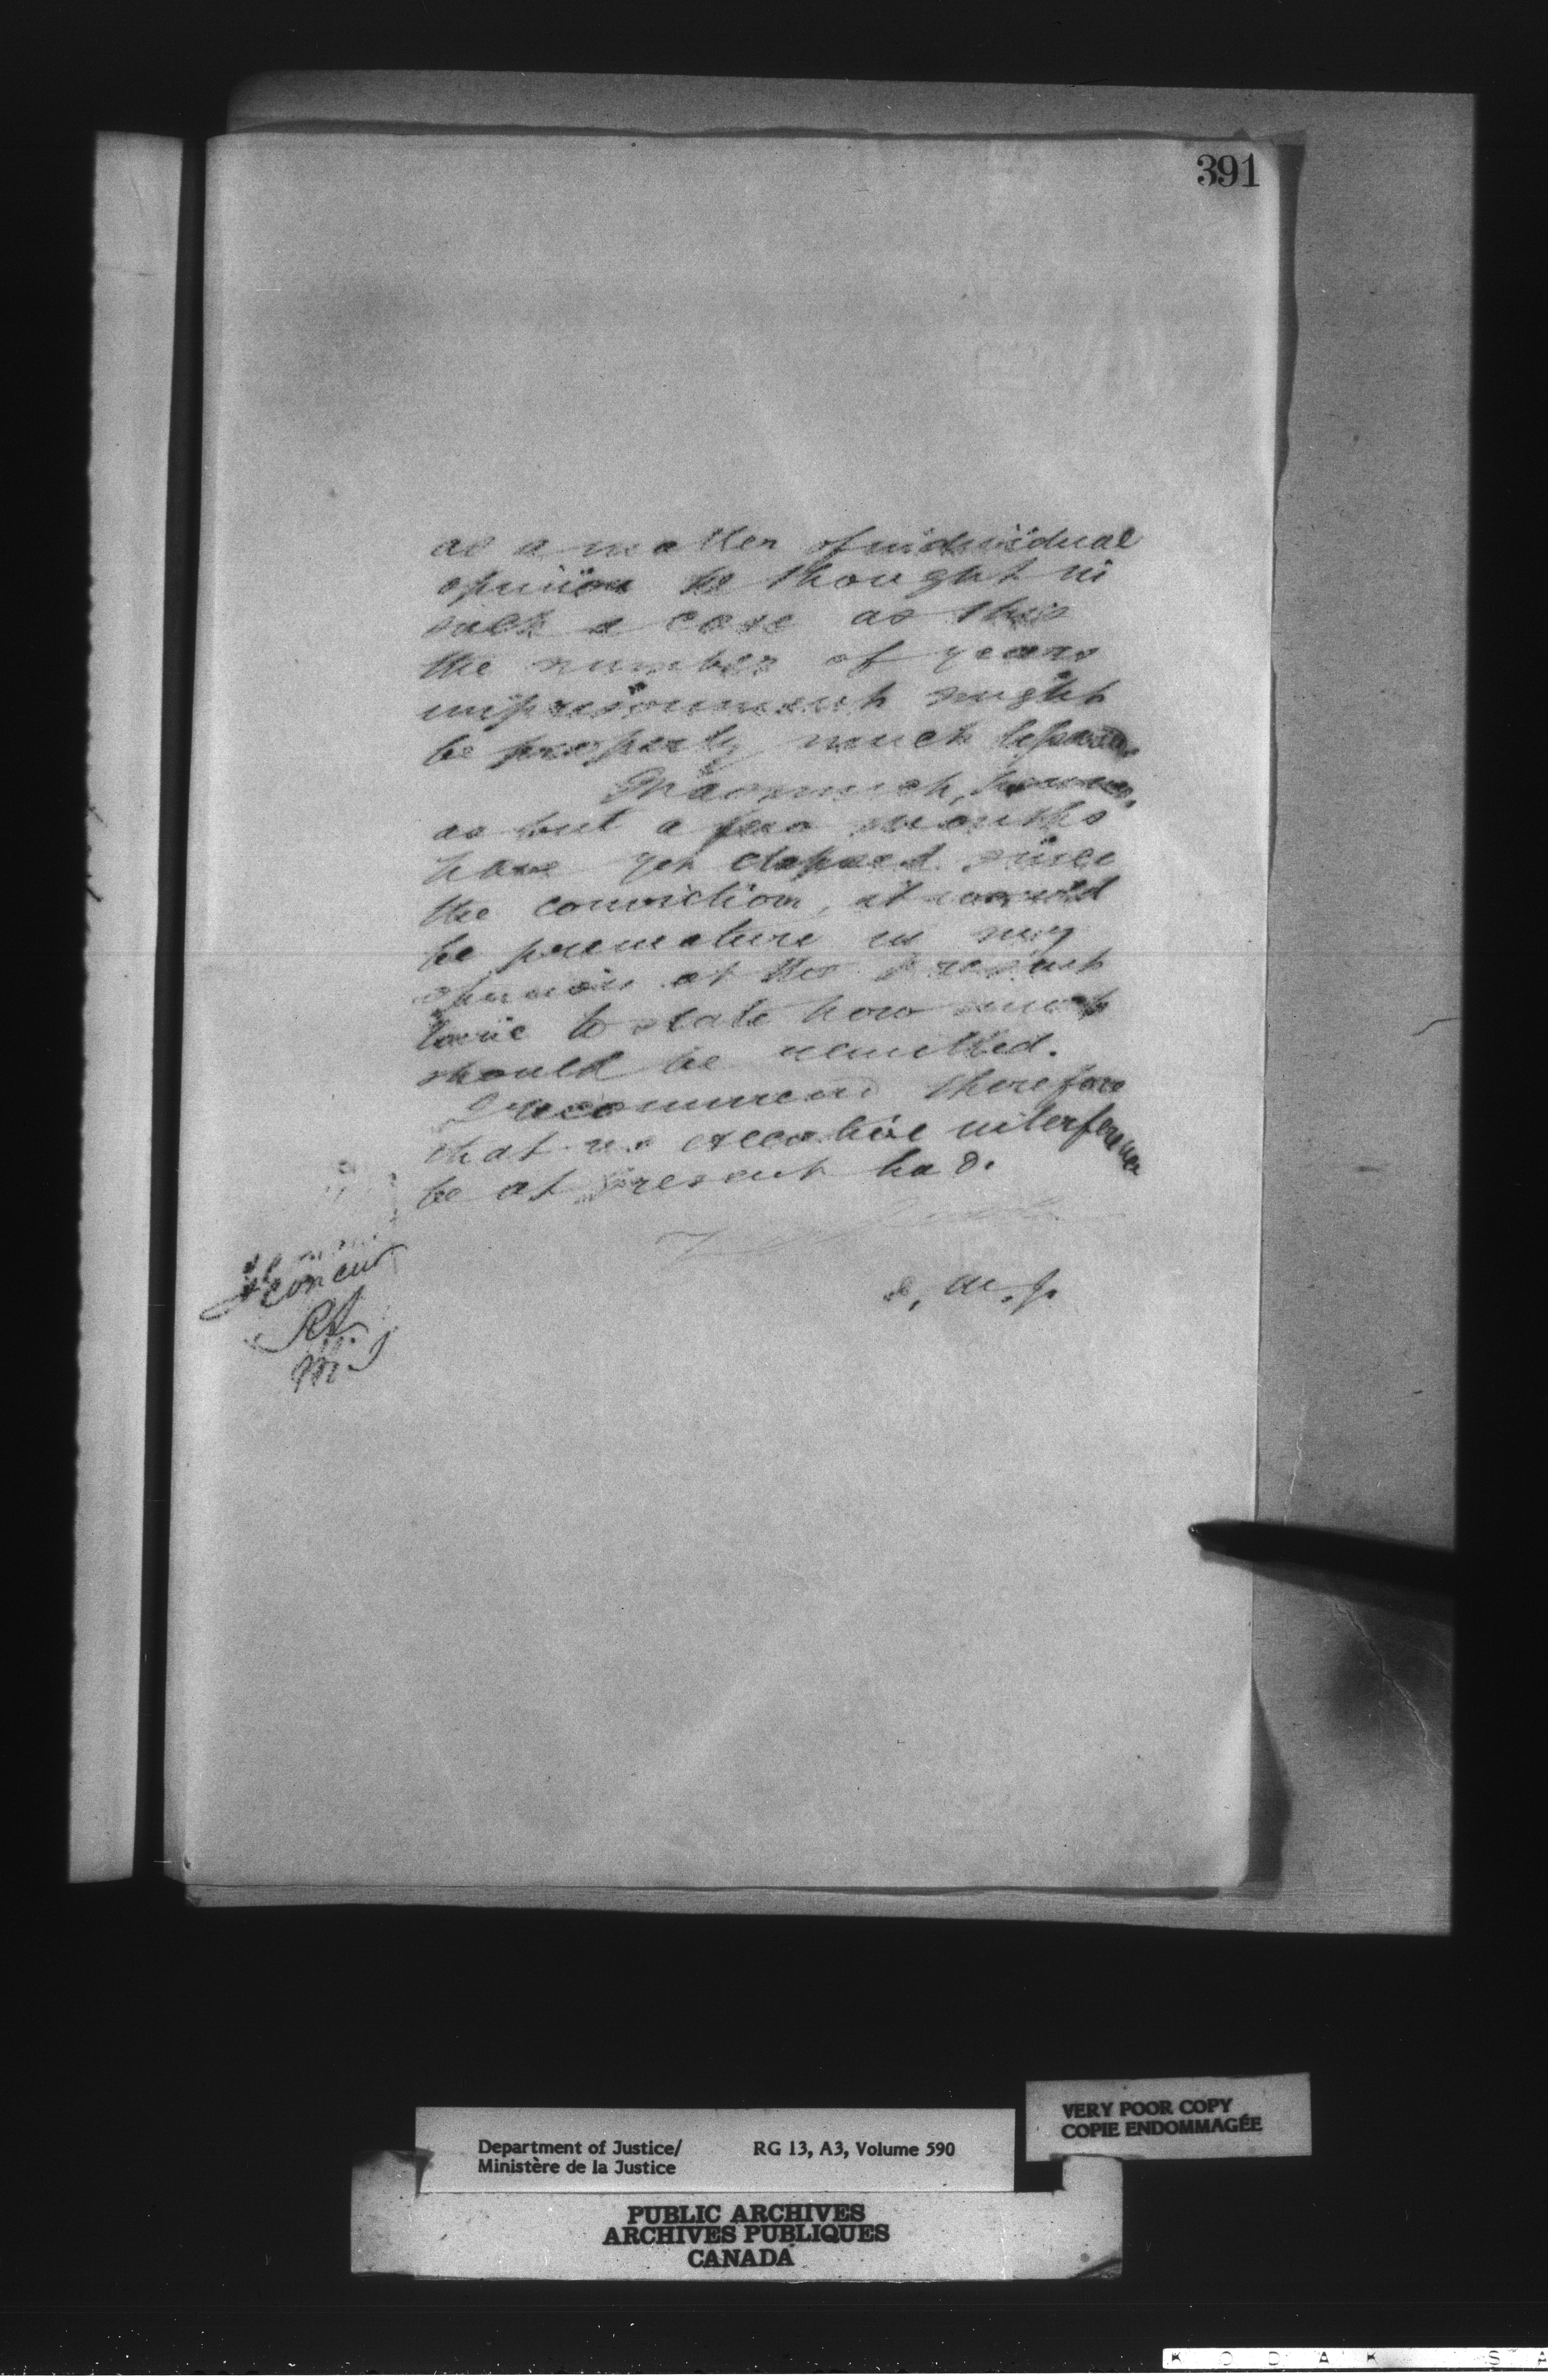 391
as a matter of individual
opinion he thought in
such a case as this
the number of years
imprisonment might
be properly much lessened.
Inasmuch, however,
as but a few months
have yet elapsed since
the conviction, it would
be premature in my
opinion at the present
time to state how much
should be remitted.
I recommend therefore
that no executive interference
be at present had.
D. M. J.
I concur
M. J.
VERY POOR COPY
COPIE ENDOMMAGÉE
Department of Justice/ RG 13, A3, Volume 590
Ministère de la Justice
PUBLIC ARCHIVES
ARCHIVES PUBLIQUES
CANADA
K O D A K S A